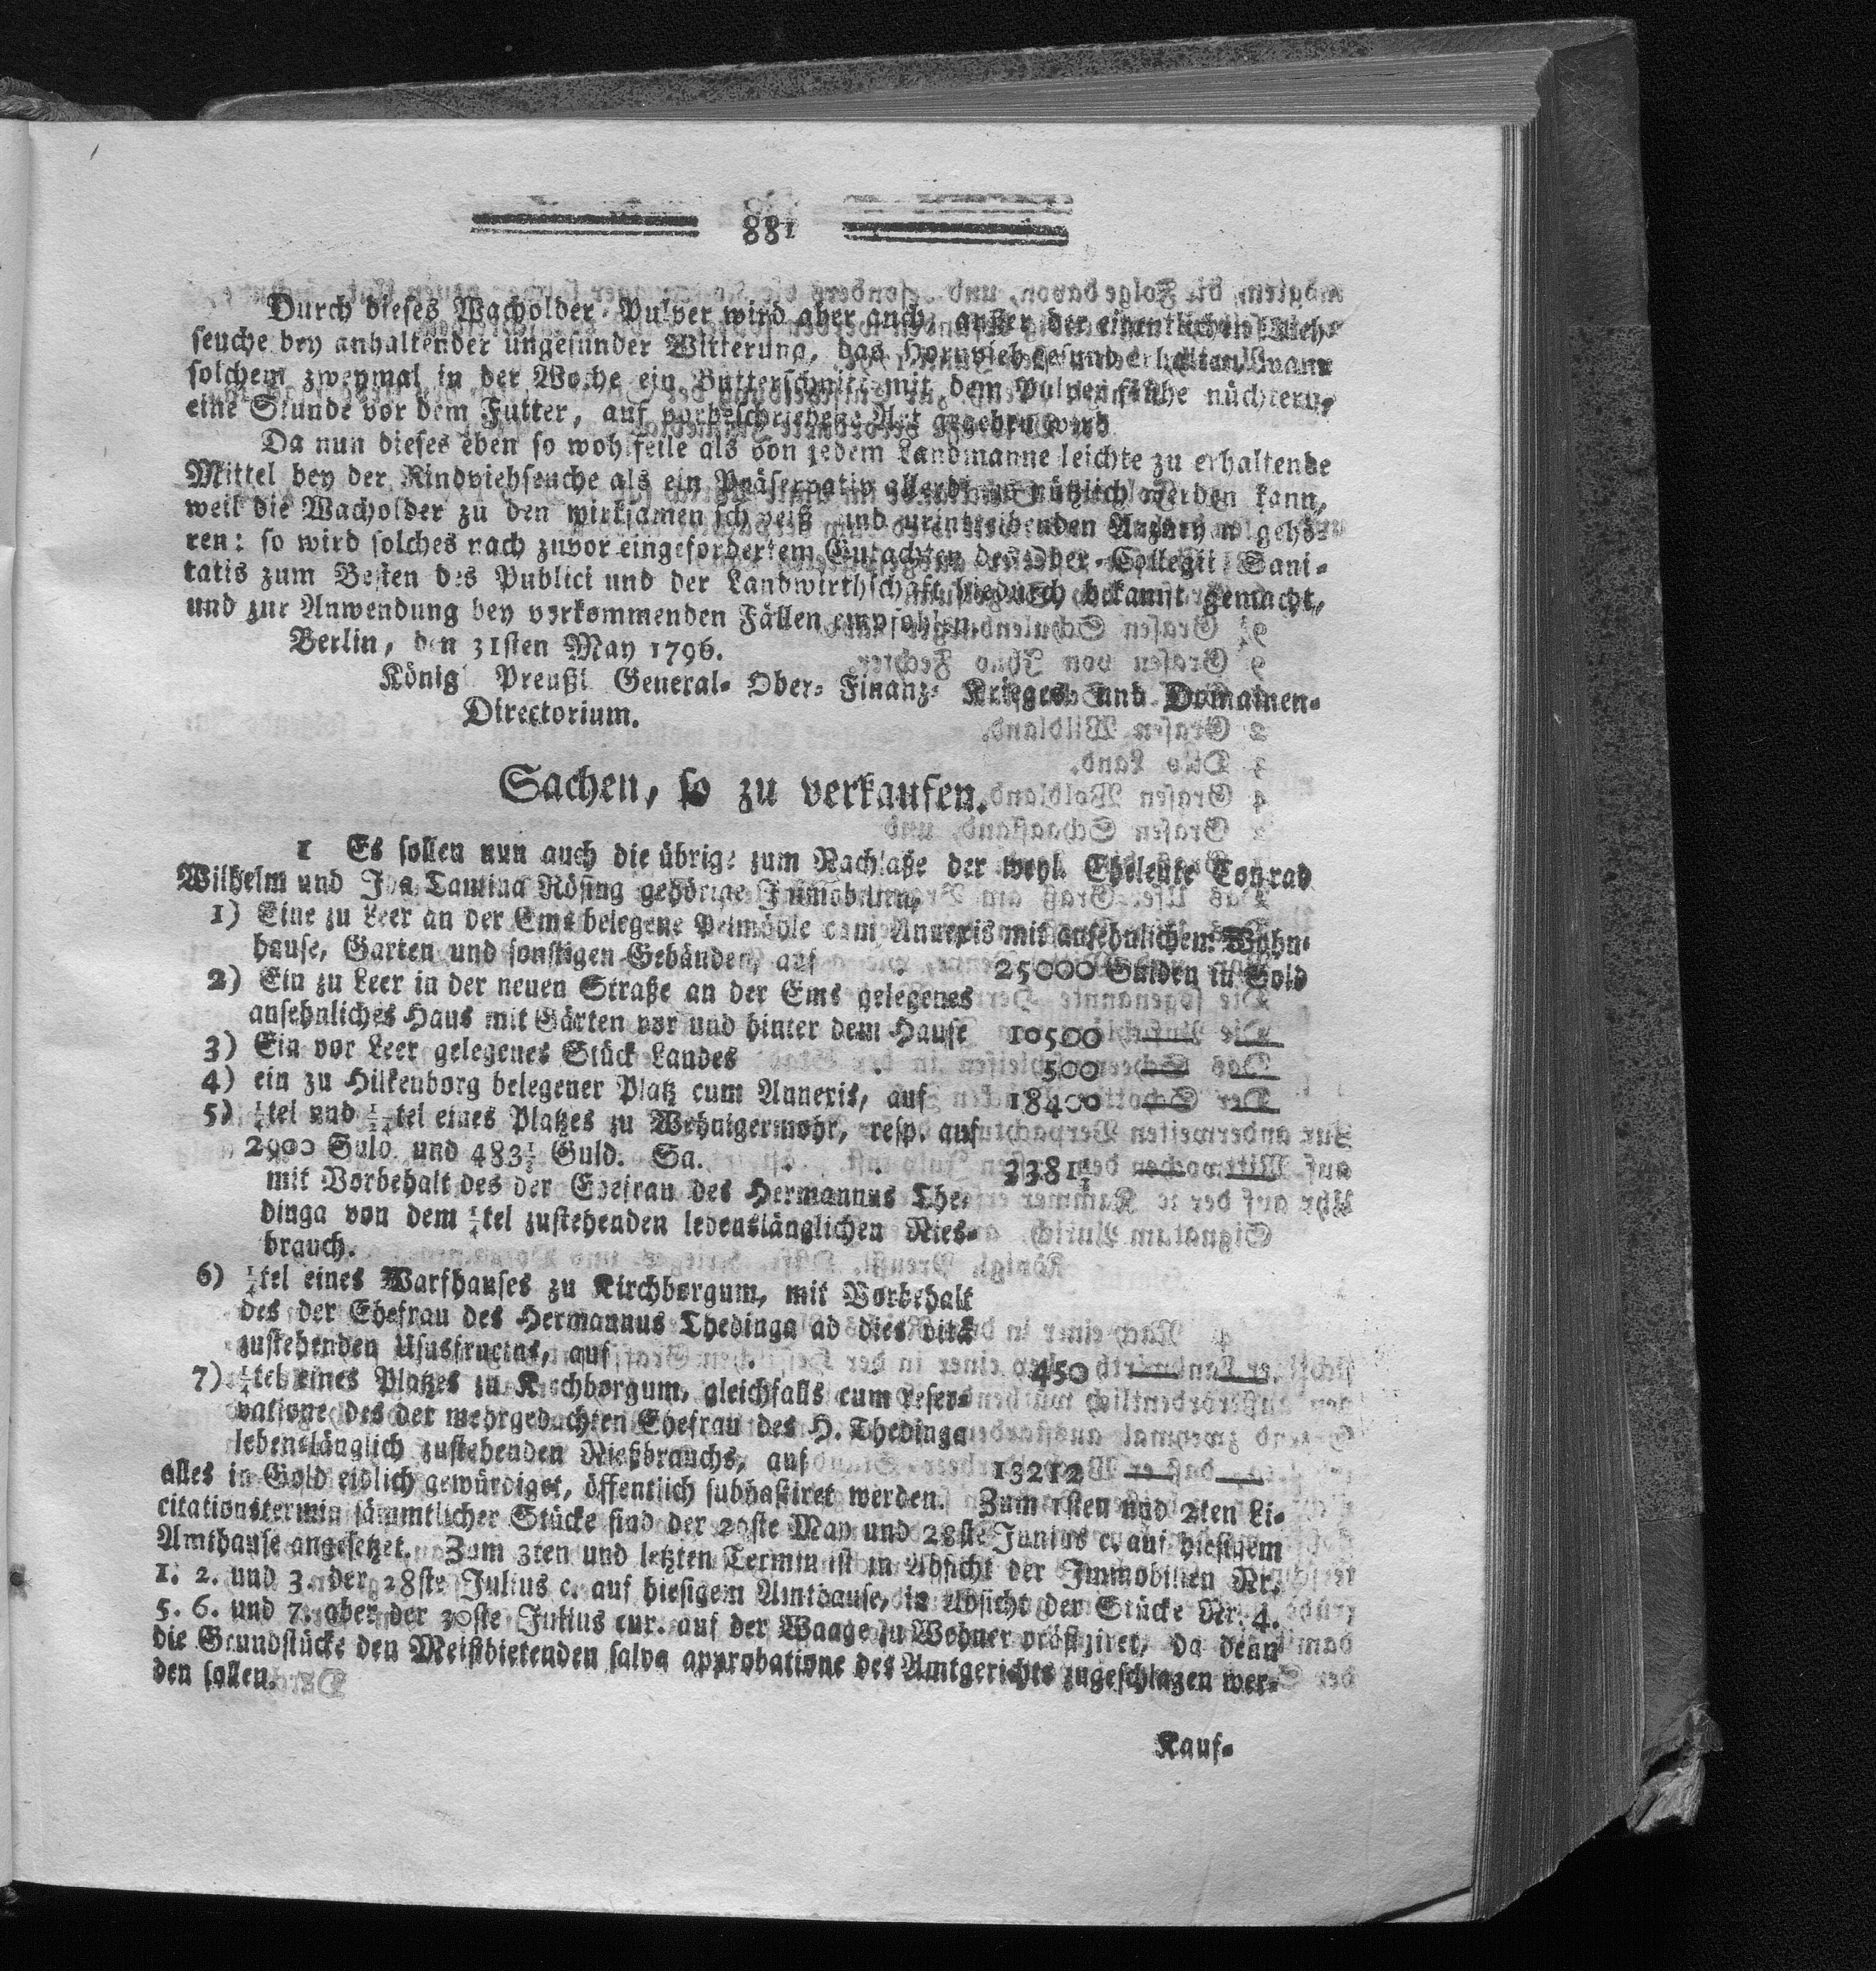 881
Durch dieses Wacholder-Pulver wird aber auch, außer der eigentlichen Vieh-
seuche bey anhaltender ungesunder Witterung, das Hornvieh gesund erhalten, wann
solchem zweymal in der Woche ein Butterschnitt mit dem Pulver frühe nüchtern,
eine Stunde vor dem Futter, auf vorbeschriebene Art gegeben wird.
Da nun dieses eben so wohlfeile als von jedem Landmanne leichte zu erhaltende
Mittel bey der Rindviehseuche als ein Präservativ allerdings nützlich werden kann,
weil die Wacholder zu den wirksamen schweiß- und urintreibenden Arzneyen gehö-
ren: so wird solches nach zuvor eingefordertem Gutachten des Ober-Collegii Sani-
tatis zum Besten des Publici und der Landwirthschaft hiedurch bekannt gemacht,
und zur Anwendung bey vorkommenden Fällen empfohlen.
Berlin, den 31sten May 1796.
Königl Preußl General- Ober- Finanz- Krieges- und Domainen-
Directorium.
Sachen, so zu verkaufen.
1 Es sollen nun auch die übrige zum Nachlaße der weyl. Eheleute Conrad
Wilhelm und Ida Tamina Rösing gehörige Immobilien,
1) Eine zu Leer an der Ems belegene Pelmöhle cum Annexis mit ansehnlichem Wohn-
hause, Garten und sonstigen Gebänden, auf 25000 Gulden in Gold
2) Ein zu Leer in der neuen Straße an der Ems gelegenes
ansehnliches Haus mit Gärten vor und hinter dem Hause 10500 — —
3) Ein vor Leer gelegenes Stück Landes . 500 — —
4) ein zu Hilkenborg belegener Platz cum Annexis, auf 18400 — —
5) tel und tel eines Platzes zu Wehnigermohr, resp. auf
2900 Guld. und 483½ Guld. Sa. . . 3381½ — —
mit Vorbehalt des der Ehefrau des Hermannus The-
dinga von dem tel zustehenden lebenslänglichen Nies-
brauch.
6) tel eines Warfhauses zu Kirchborgum, mit Vorbehalt
des der Ehefrau des Hermannus Thedinga ad dies vitä
zustehenden Ususfructus, auf . 450 — —
7) tel eines Platzes zu Kirchborgum, gleichfalls cum Reser-
vatione des der mehrgedachten Ehefrau des H. Thedinga
lebenslänglich zustehenden Nießbrauchs, auf 13212 — —
alles in Gold eidlich gewürdiget, öffentlich subhastiret werden. Zum 1sten und 2ten Li-
citationstermin sämmtlicher Stücke sind der 29ste May und 28ste Junius c. auf hiesigem
Amthause angesetzet. Zum 3ten und letzten Termin ist in Absicht der Immobilien Nr.
1. 2. und 3. der 28ste Julius c. auf hiesigem Amthause, in Absicht der Stücke Nr. 4.
5. 6. und 7. aber der 30ste Julius cur. auf der Waage zu Wehner präfiziret, da denn
die Grundstücke den Meistbietenden salva approbatione des Amtgerichts zugeschlagen wer-
den sollen.
Kauf-